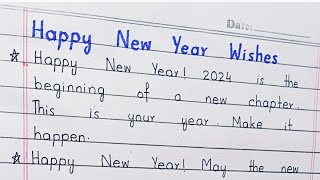 Date:
Happy New Year Wishes
☆ Happy New Year! 2024 is the
beginning of a new chapter.
This is your year. Make it
happen.
☆ Happy New Year! May the new